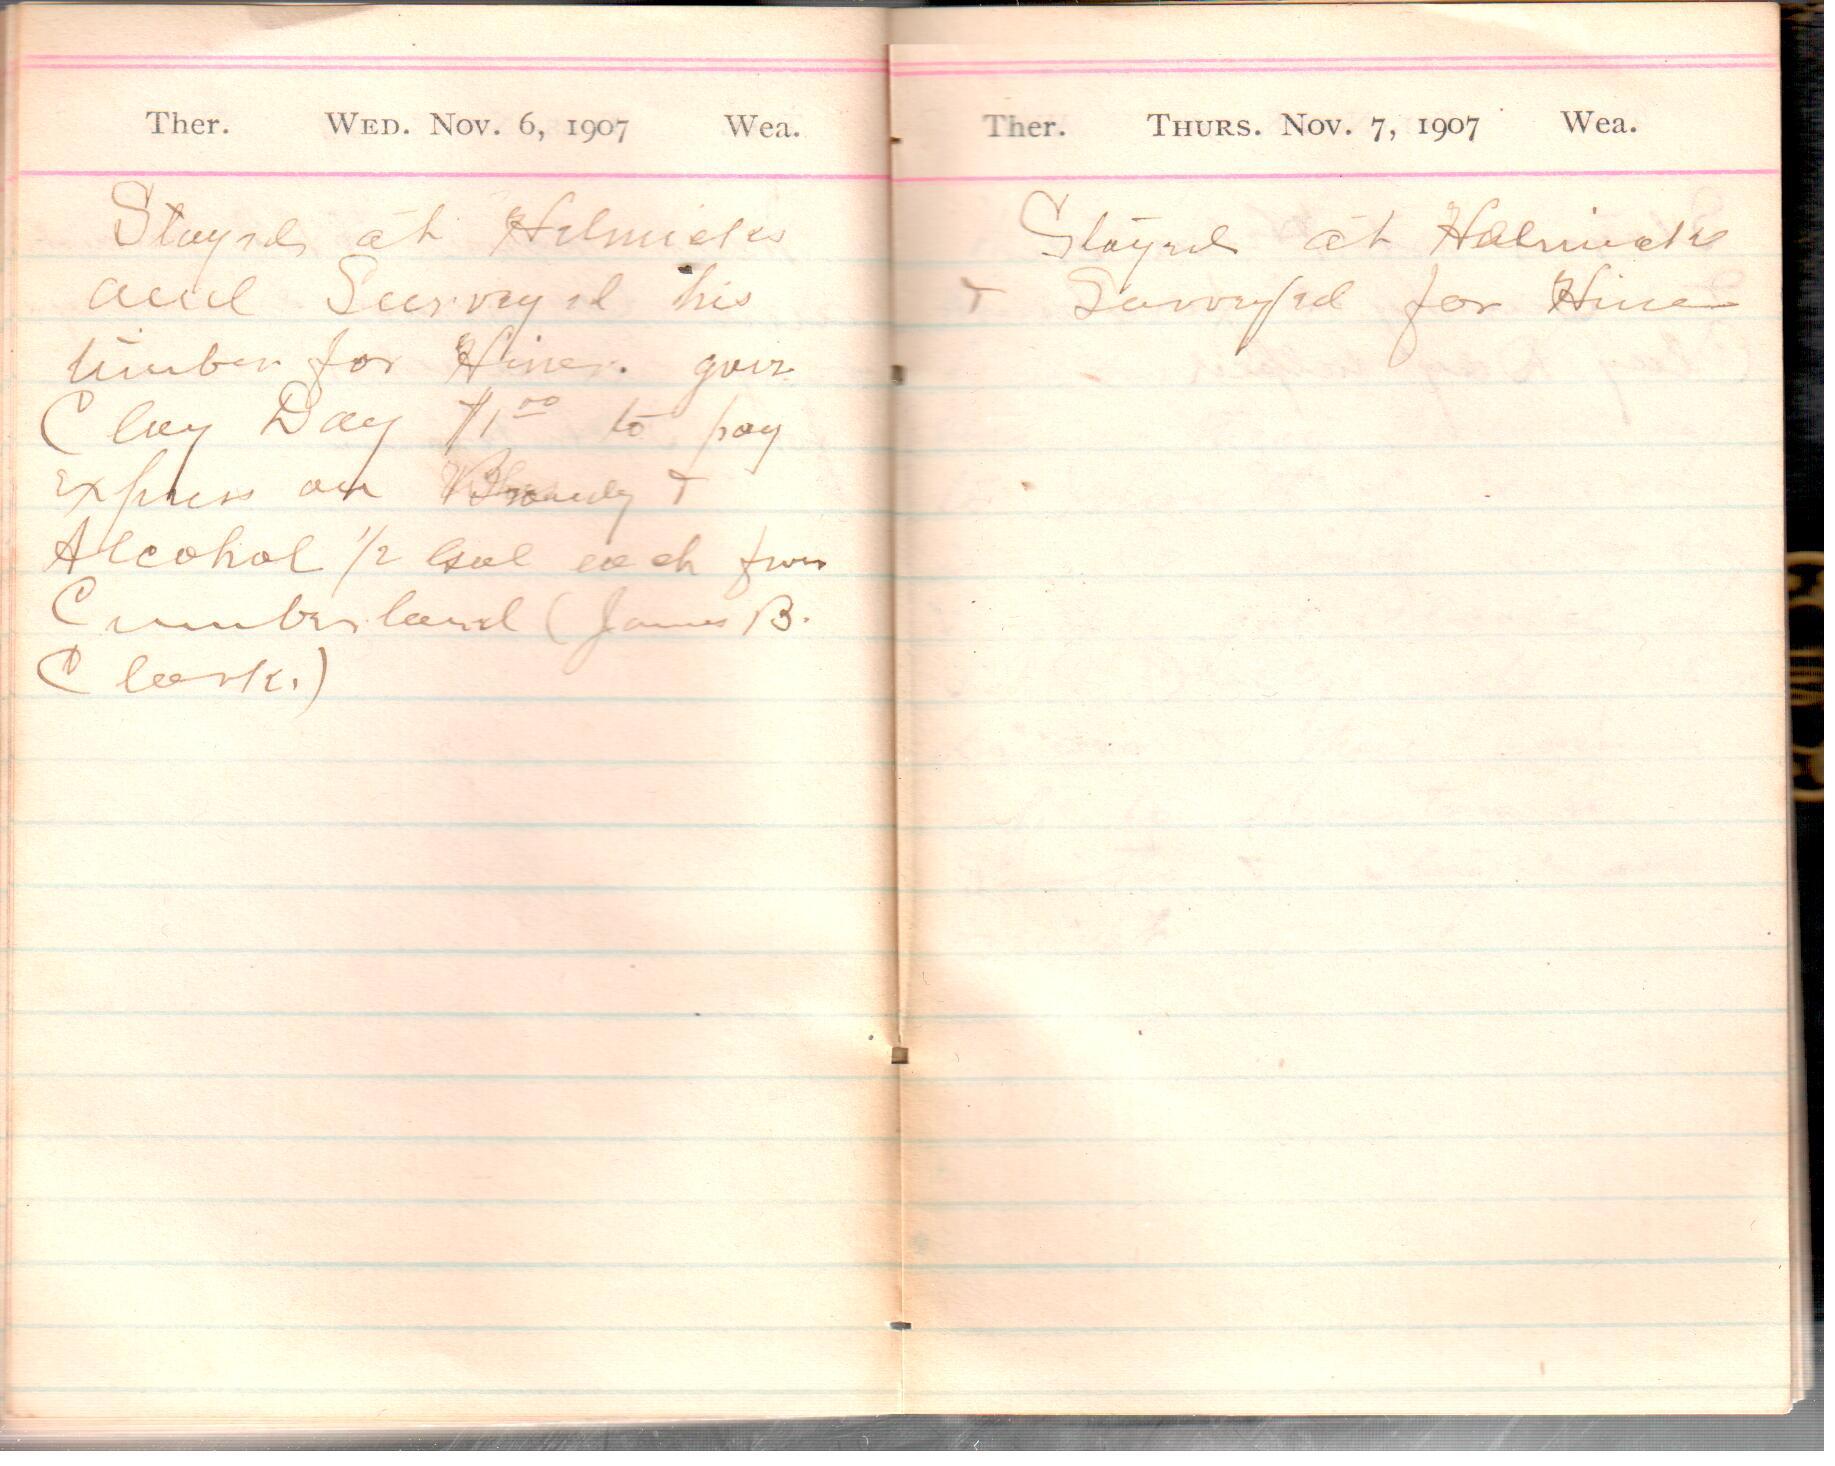 Ther. Wed. Nov. 6, 1907 Wea.
Stayed at Helmicks
and Surveyed his
timber for Hiner. gave
Clay Day $100 to pay
express on Brandy +
Alcohol 1/2 Gal each from
Cumberland (James B.
Clark.)
Ther. Thurs. Nov. 7, 1907 Wea.
Stayed at Helmicks
+ Surveyed for Hiner